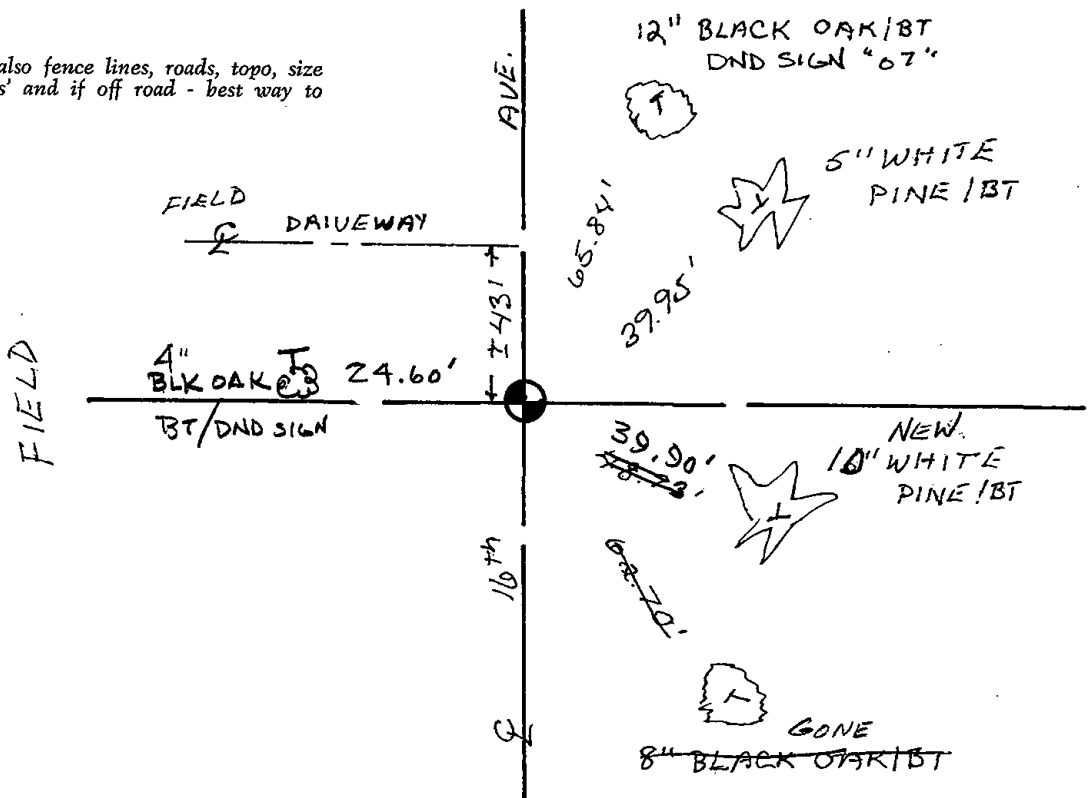 also fence lines, roads, topo, size
s' and if off road - best way to
AVE.
12" BLACK OAK/BT
DND SIGN "07"
T
5" WHITE
PINE/BT
T
FIELD
℄ DRIVEWAY
65.84'
39.95'
±431
FIELD
4"
BLK OAK T 24.60'
BT/DND SIGN
39.90'
NEW.
10" WHITE
PINE/BT
T
16th
62.70'
℄
T
GONE
8" BLACK OAK/BT